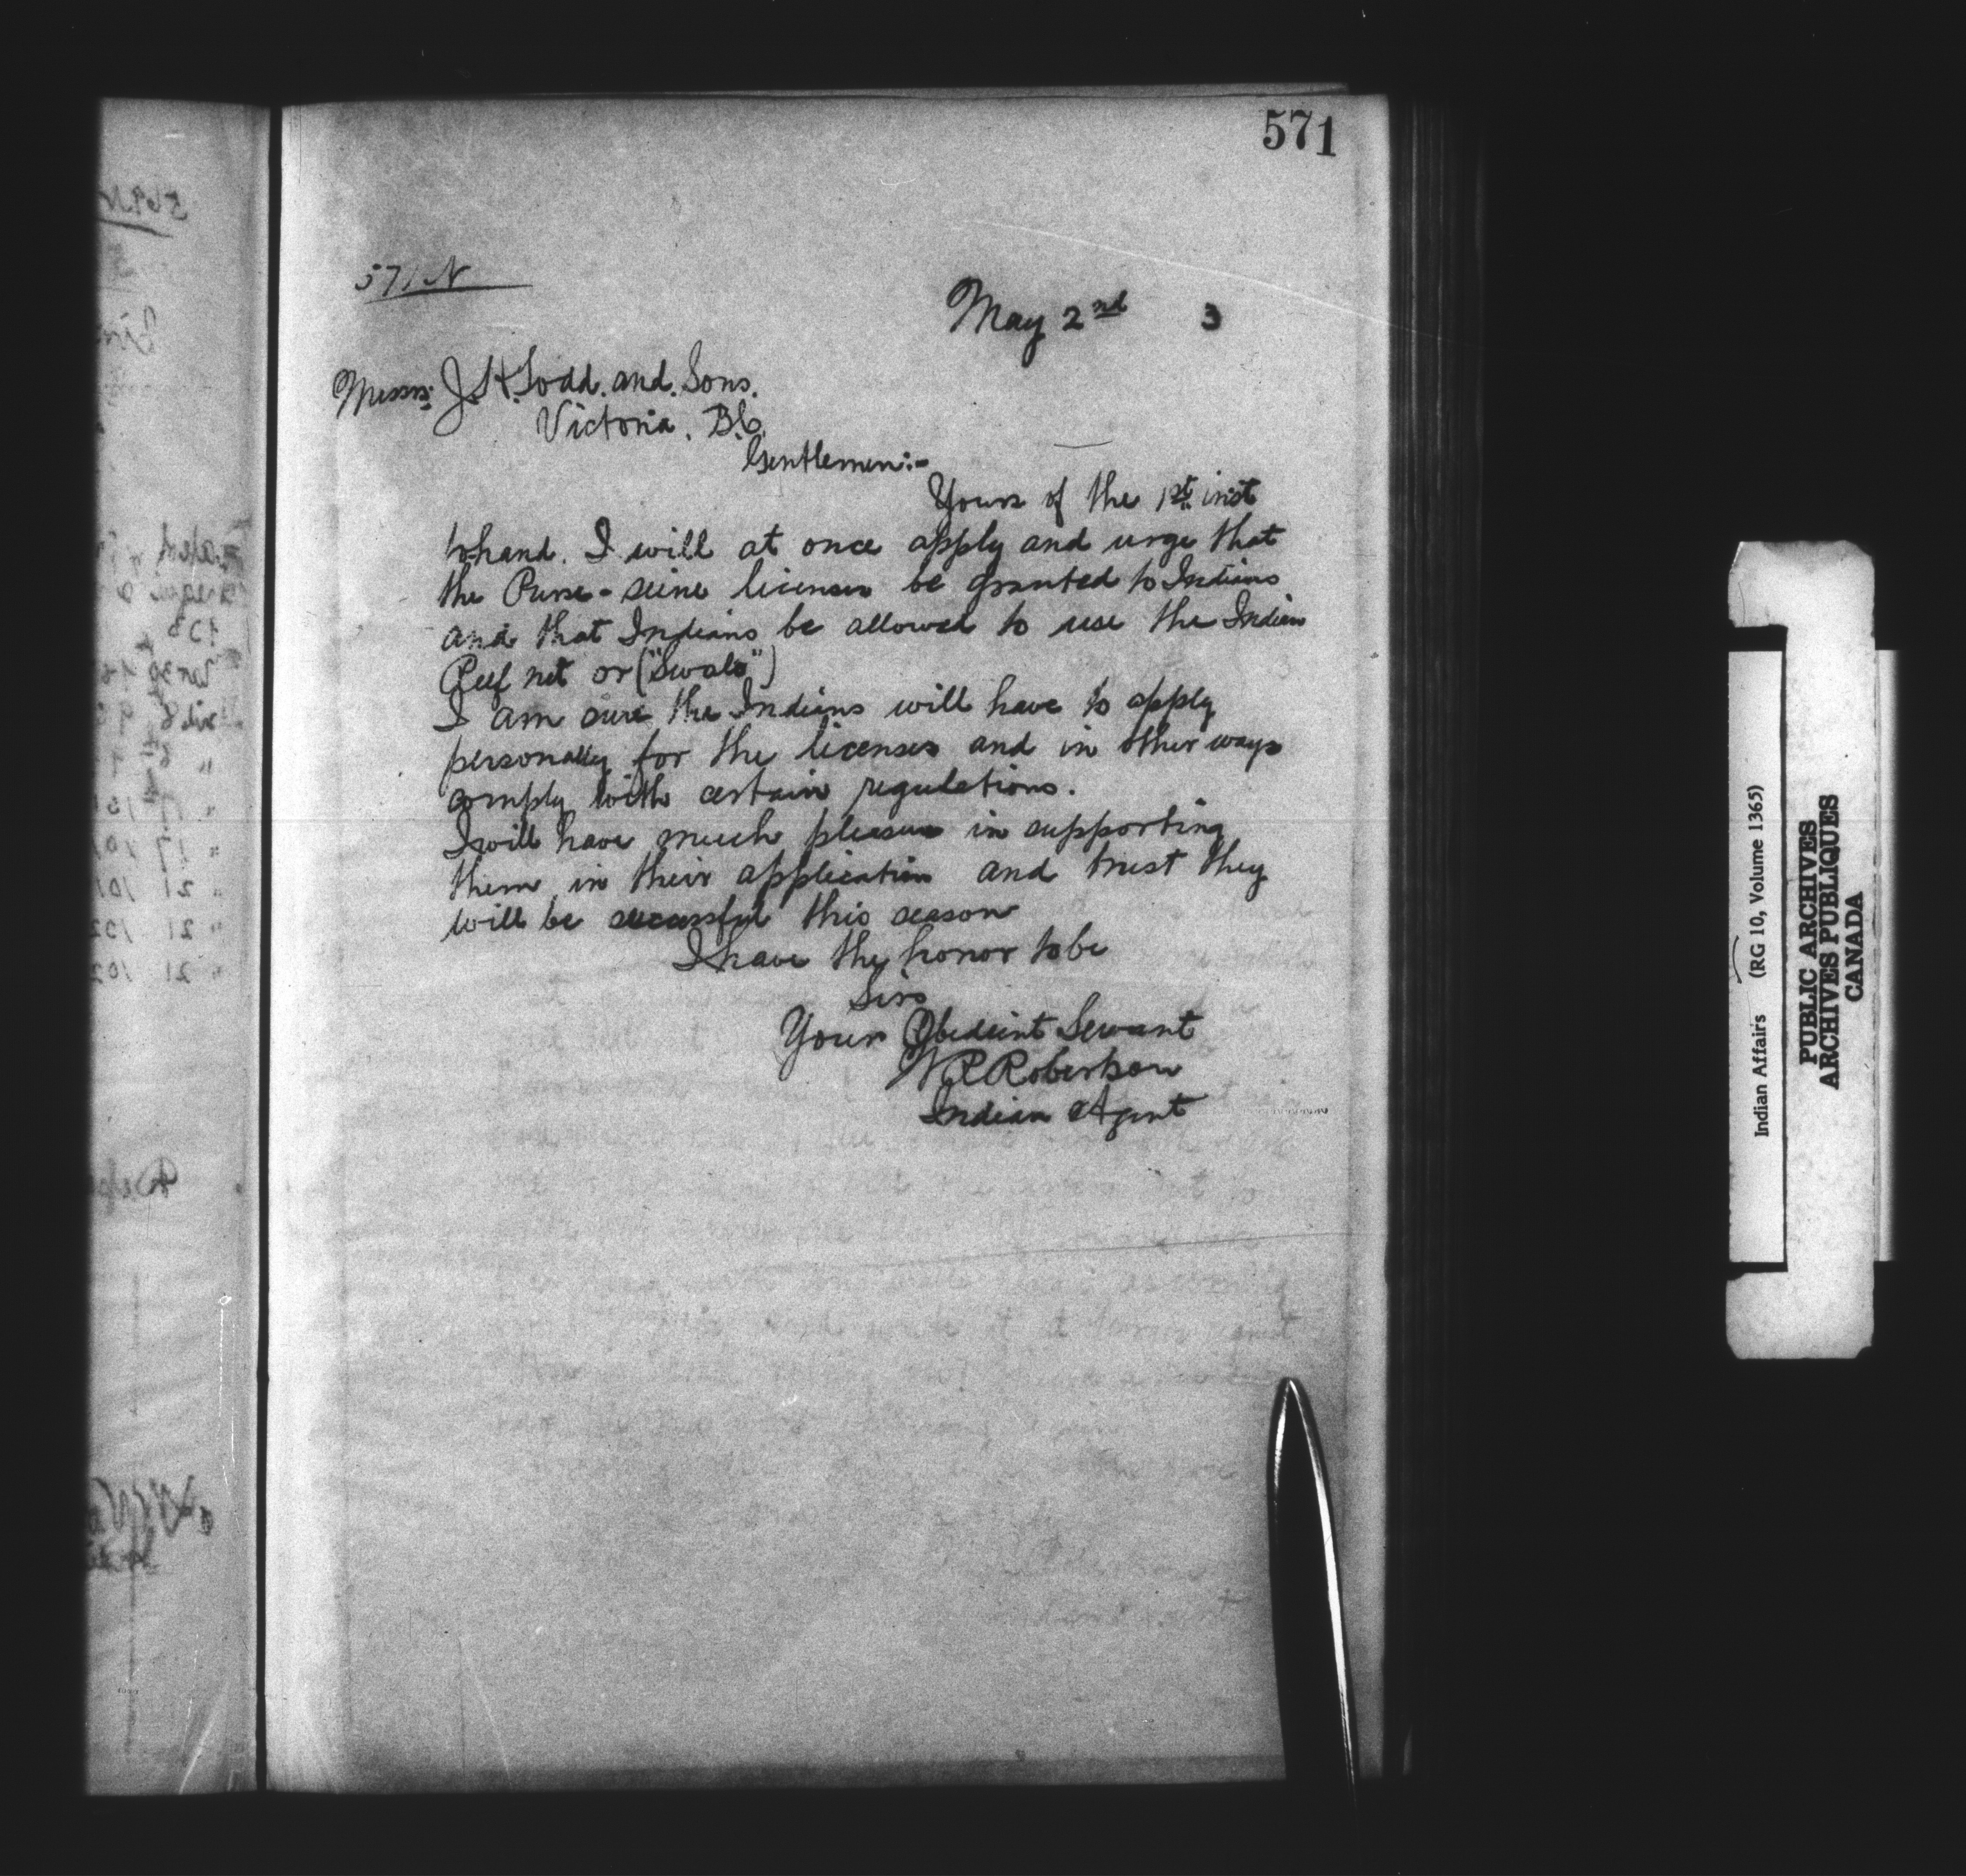 571
571 N
May 2nd 3
Messrs. J. H. Todd. and. Sons.
Victoria. B.C.
Gentlemen:-
Yours of the 1st. inst
to hand. I will at once apply and urge that
the Purse-seine licenses be granted to Indians
and that Indians be allowed to use the Indian
Reef net or ("Swalo")
I am sure the Indians will have to apply
personally for the licenses and in other ways
comply with certain regulations.
I will have much pleasure in supporting
them in their application and trust they
will be successful this season
I have the honor to be
Sirs
Your Obedient Servant
W R Robertson
Indian Agent
Indian Affairs (RG 10, Volume 1365)
PUBLIC ARCHIVES
ARCHIVES PUBLIQUES
CANADA